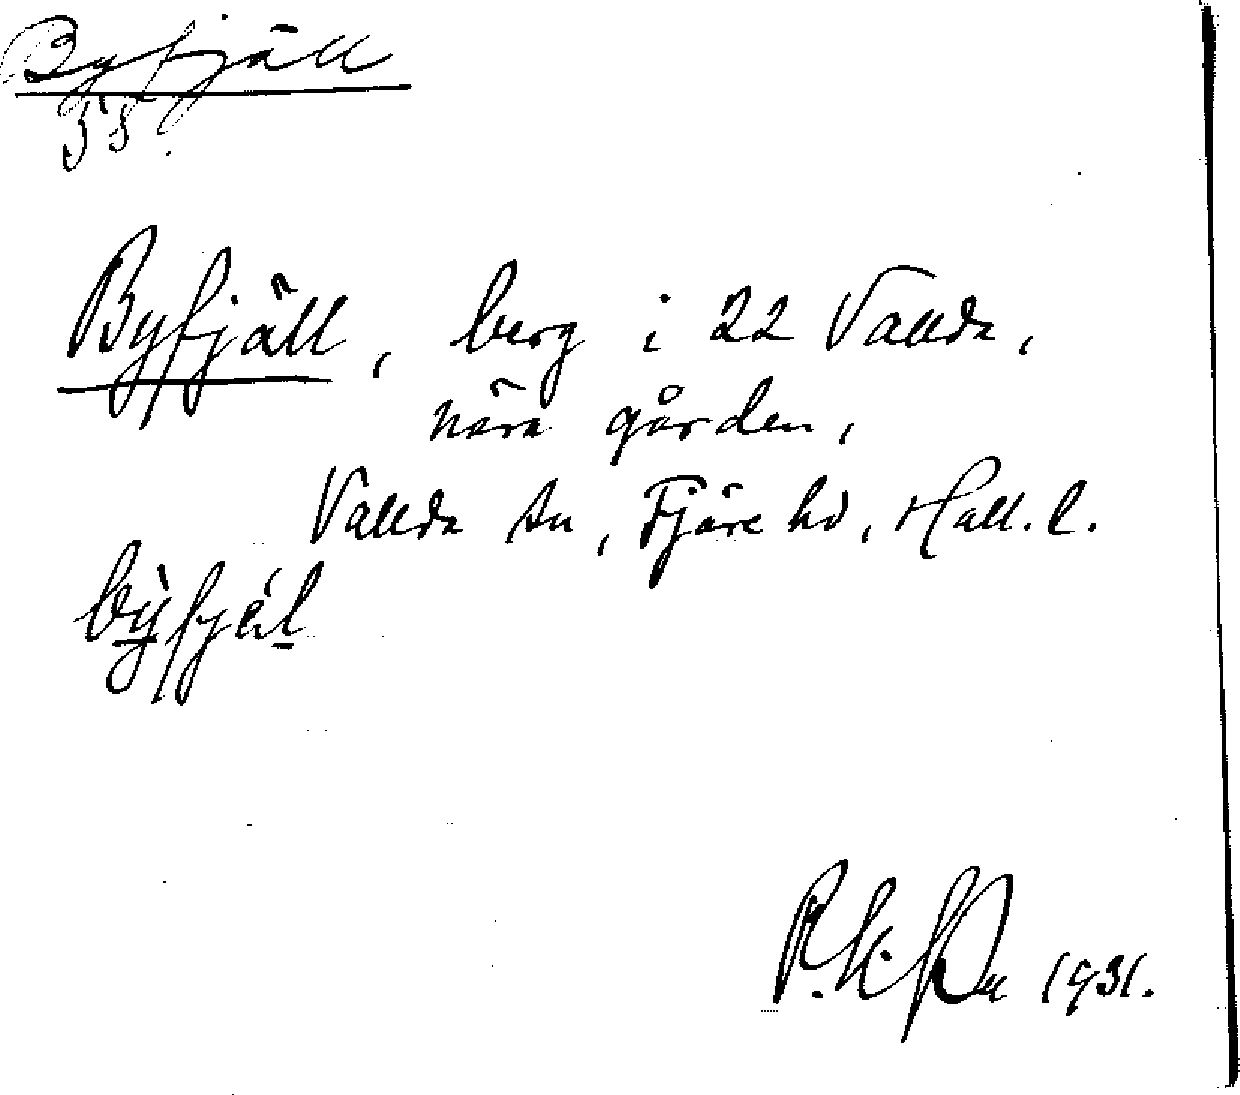 Byfjäll
55.
Byfjäll, berg i 22 Vallda,
nära gården,
Vallda sn, Fjäre hd, Hall. l.
bỳfjäl
1931.